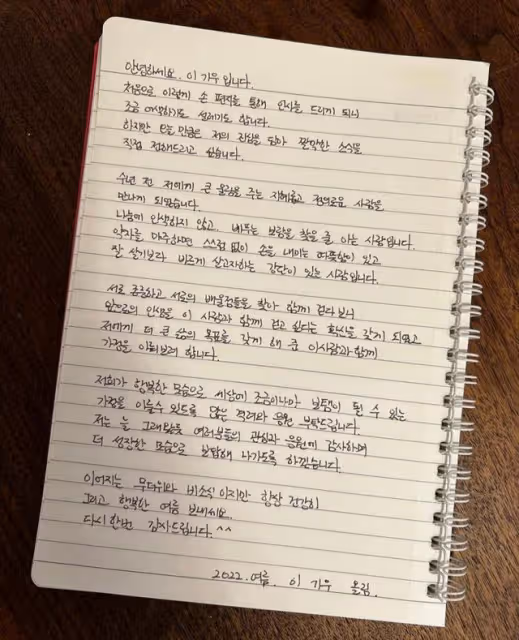 안녕하세요. 이 가우 입니다.
처음으로 이렇게 손 편지를 통해 인사를 드리게 되니
조금 어색하기도 설레기도 합니다.
하지만 오늘 만큼은 저의 진심을 담아 깜짝한 소식을
직접 전해드리고 싶습니다.
수년 전 저에게 큰 울림을 주는 지혜롭고 경이로운 사람을
만나게 되었습니다.
나눔에 인색하지 않고, 베푸는 보람을 찾을 줄 아는 사람입니다.
약자를 마주하면 스스럼 없이 손을 내미는 따뜻함이 있고
잘 살기보다 바르게 살고자하는 강단이 있는 사람입니다.
서로 존중하고 서로의 배울점들을 찾아 함께 걷다보니
앞으로의 인생을 이 사람과 함께 걷고 싶다는 확신을 갖게 되었고
저에게 더 큰 삶의 목표를 갖게 해 준 이사람과 함께
가정을 이뤄보려 합니다.
저희가 행복한 모습으로 세상에 조금이나마 보탬이 될 수 있는
가정을 이룰수 있도록 많은 격려와 응원 부탁드립니다.
저는 늘 그래왔듯 여러분들의 관심과 응원에 감사하며
더 성장한 모습으로 보답해 나가도록 하겠습니다.
이어지는 무더위와 비소식 이지만 항상 건강히
그리고 행복한 여름 보내세요.
다시 한번 감사드립니다. ^^
2022. 여름. 이 가우 올림.